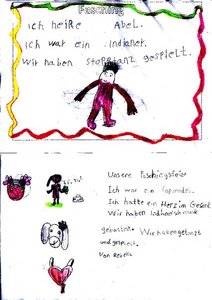 Fasching
Ich heiße Abel.
Ich war ein Indianer.
Wir haben Stopptanz gespielt.
Unsere Faschingsfeier
Ich war ein Topmodel.
Ich hatte ein Herz im Gesicht
Wir haben Indianerschmuck
gebastelt. Wir haben getanzt
und gespielt.
Von